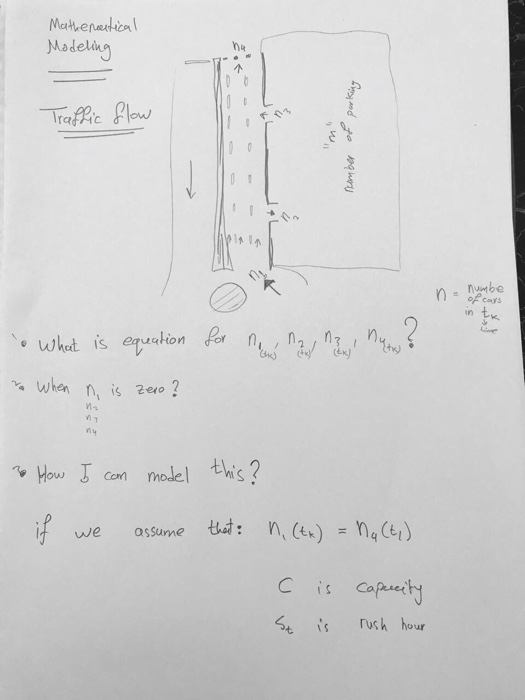 Mathematical
Modeling
Traffic flow
n4
n3
"m"
number of parking
n2
n1
n = numbe
of cars
in tk
time
1. What is equation for n1(tk), n2(tk), n3(tk), n4(tk)?
2. When n1 is zero?
n2
n3
n4
3. How I can model this?
if we assume that: n1(tk) = n4(t1)
C is capecity
St is rush hour